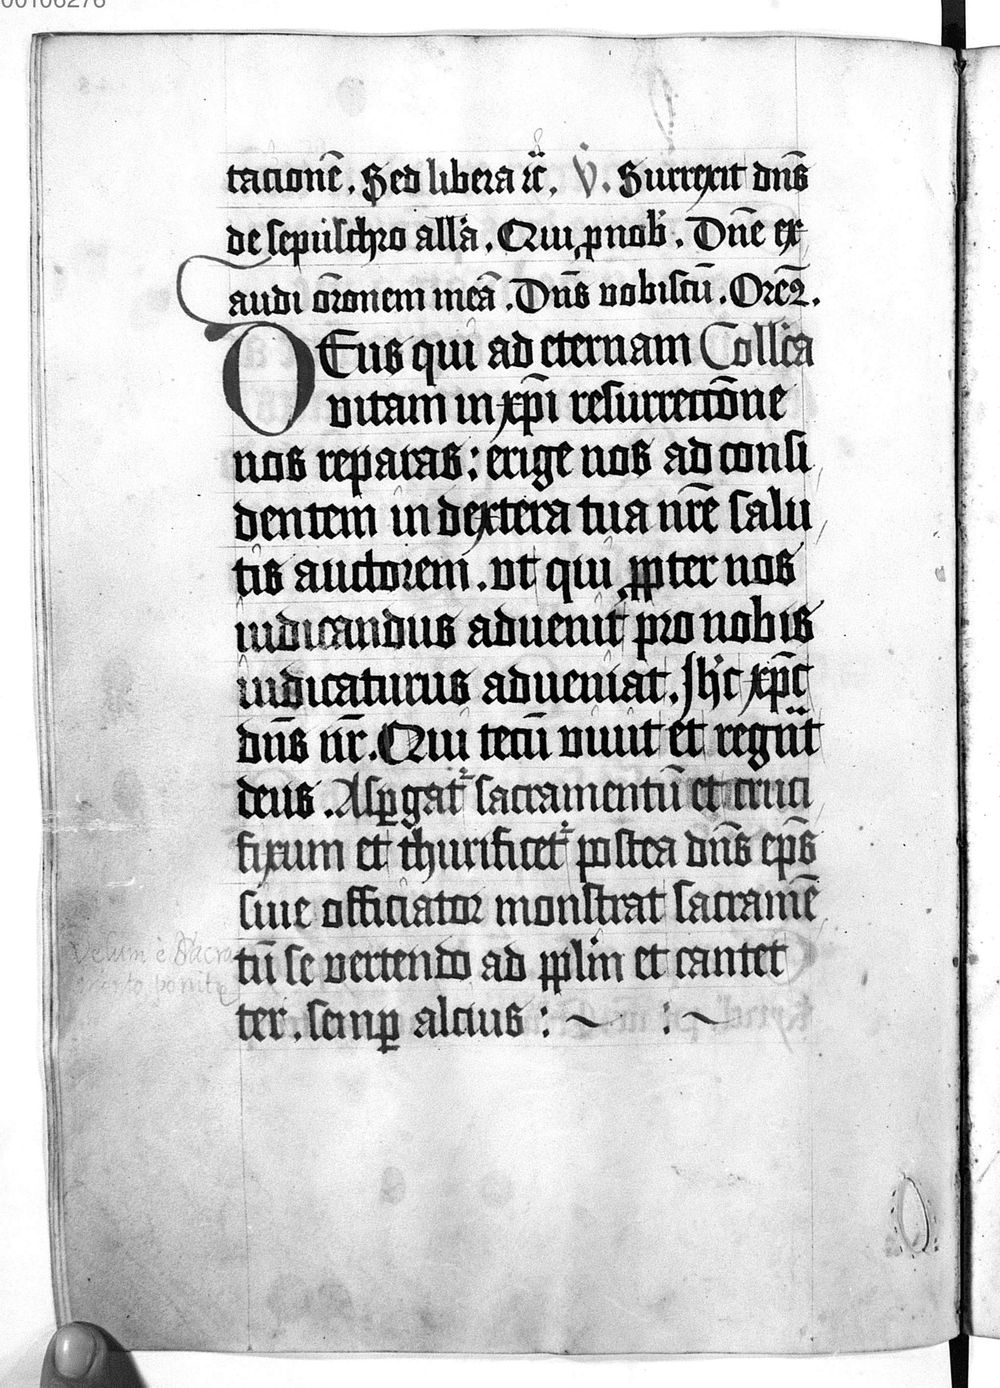 00106276
tacionē. Sed libera ⁊c̄. V̇. Surrexit dn̄s
de sepulchro all'a. Qui p nob'. Dn̄e ex
audi or̄onem meā. Dn̄s vobiscū. Orem⁹.
DEus qui ad eternam Coll'ca
vitam in xp̄i resurrectōne
nos reparas: erige nos ad consi
dentem in dextera tua nr̄e salu
tis auctorem. vt qui ꝓpter nos
iudicandus aduenit pro nobis
iudicaturus adueniat. Jh'c xp̄c
dn̄s nr̄. Qui tecū viuit et regn̄t
deus. Aspꝑgat᷑ sacramentū et cruci
fixum et thurificet᷑ postea dn̄s ep̄s
siue officiator monstrat sacramē
tū se vertendo ad pp̄lm et cantet
ter. semꝑ alcius :~ :~
velum è Sacra